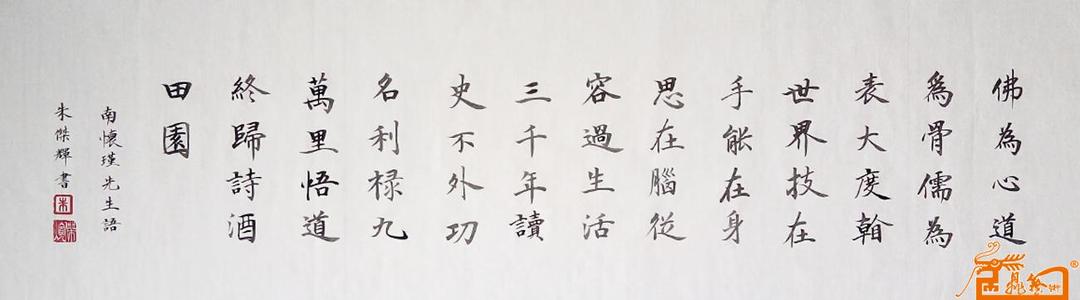 佛為心道
為骨儒為
表大度翰
世界技在
手能在身
思在腦從
容過生活
三千年讀
史不外功
名利祿九
萬里悟道
終歸詩酒
田園
南懷瑾先生語
朱傑輝書